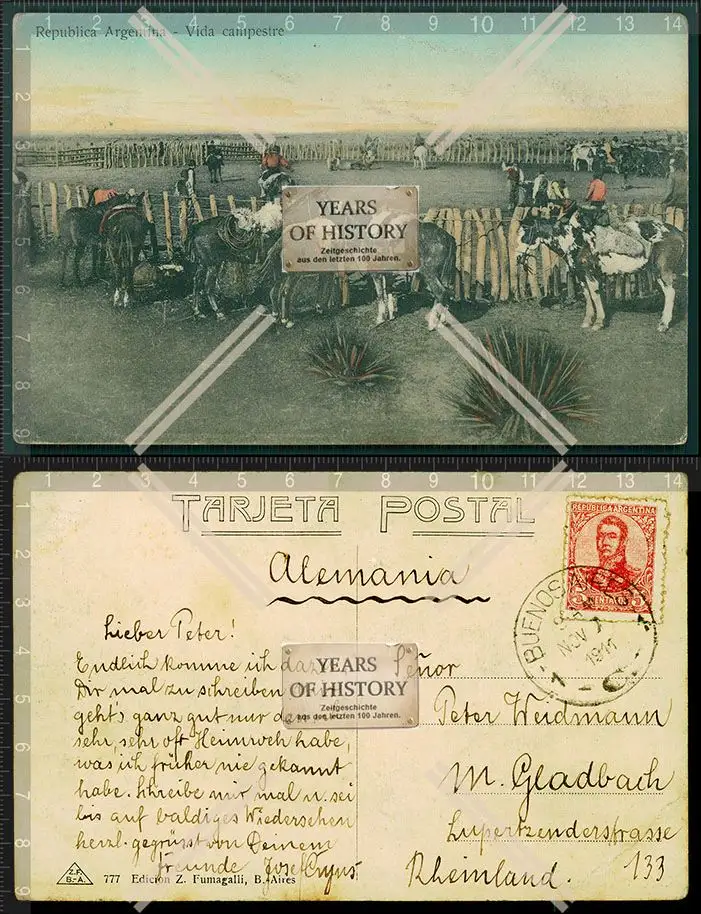 Republica Argentina - Vida campestre
YEARS
OF HISTORY
Zeitgeschichte
aus den letzten 100 Jahren.
TARJETA POSTAL
REPUBLICA ARGENTINA
5 CENTAVOS 5
BUENOS AIRES
NOV
1911
1
Alemania
Lieber Peter!
Endlich komme ich dazu
Dir mal zu schreiben
geht's ganz gut nur
sehr, sehr oft Heimweh habe,
was ich früher nie gekannt
habe. Schreibe mir mal u. sei
bis auf baldiges Wiedersehen
herzl. gegrüsst von Deinem
freunde Josef
YEARS
OF HISTORY
Zeitgeschichte
aus den letzten 100 Jahren.
Señor
Peter Weidmann
M. Gladbach
Lupertzenderstrasse
133
Rheinland.
Z.F.
B.-A.
777 Edición Z. Fumagalli, B. Aires